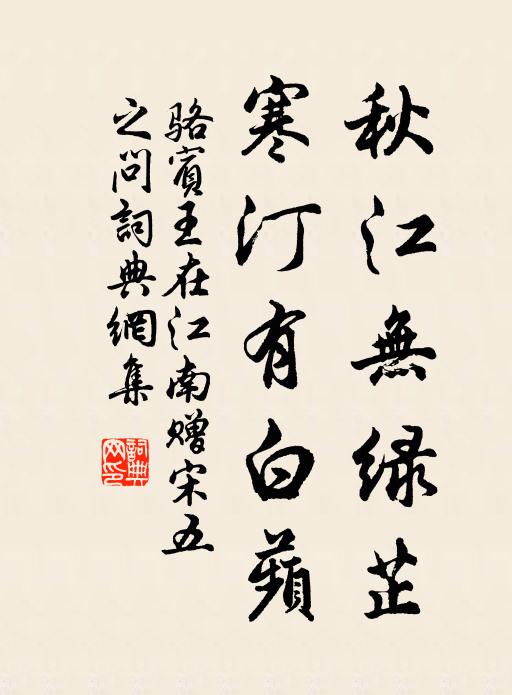 秋江無緑芷
寒汀有白蘋
骆賓王在江南赠宋五
之問詞典網集
詞典
网印